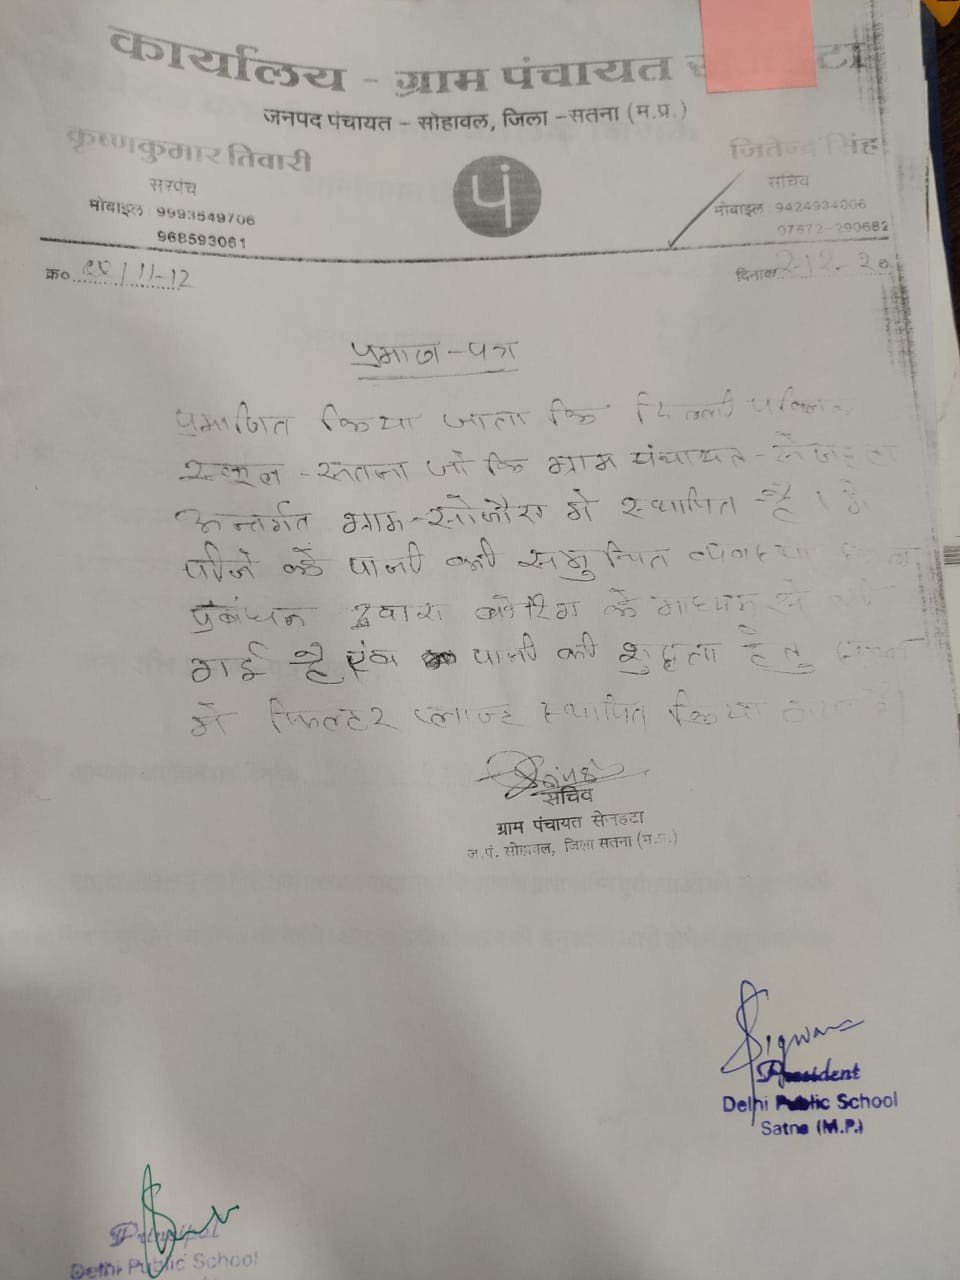 कार्यालय - ग्राम पंचायत
जनपद पंचायत - सोहावल, जिला - सतना (म.प्र.)
कृष्णकुमार तिवारी
सरपंच
मोबाइल 9993549706
968593061
पं
जितेन्द्र सिंह
सचिव
मोबाइल 9424934006
07672-290682
क्र० /11-12
दिनांक 2-12-20
प्रमाण-पत्र
प्रमाणित किया जाता कि दिल्ली पब्लिक
स्कूल - सतना जो कि ग्राम पंचायत - सेजहटा
अन्तर्गत ग्राम - सोनौरा में स्थापित है।
पीने के पानी की समुचित व्यवस्था
प्रबंधन द्वारा बोरिंग के माध्यम से की
गई है एवं पानी की शुद्धता हेतु
में फिल्टर प्लान्ट स्थापित किया
सचिव
ग्राम पंचायत सेजहटा
ज.पं. सोहावल, जिला सतना (म.प्र.)
President
Delhi Public School
Satna (M.P.)
Principal
Delhi Public School